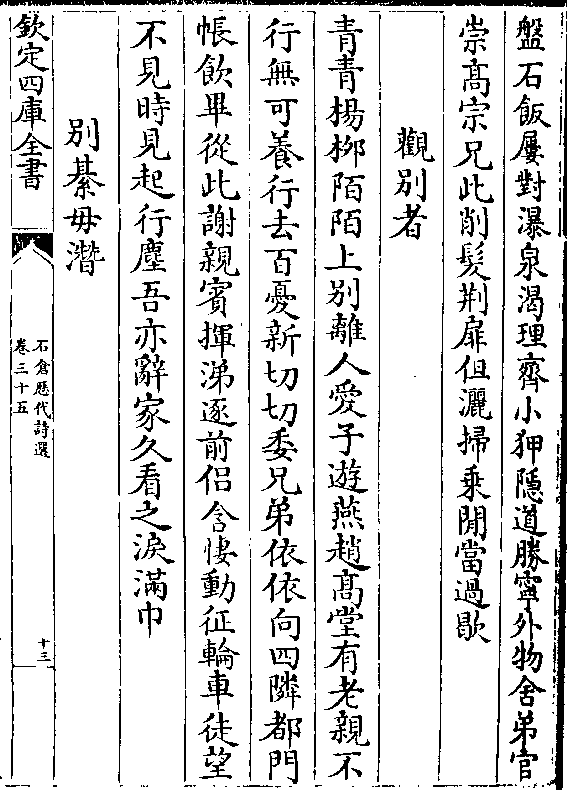 盤石飯屢對瀑泉渴理齊小狎隱道勝寧外物舍弟官
崇髙宗兄此削髮荆扉但灑掃乗閒當過歇
觀别者
青青楊栁陌陌上别離人愛子遊燕趙髙堂有老親不
行無可養行去百憂新切切委兄弟依依向四隣都門
帳飲畢從此謝親賓揮涕逐前侣含悽動征輪車徒望
不見時見起行塵吾亦辭家久看之淚滿巾
别綦毋潛
欽定四庫全書
石倉歴代詩選
卷三十五
十三